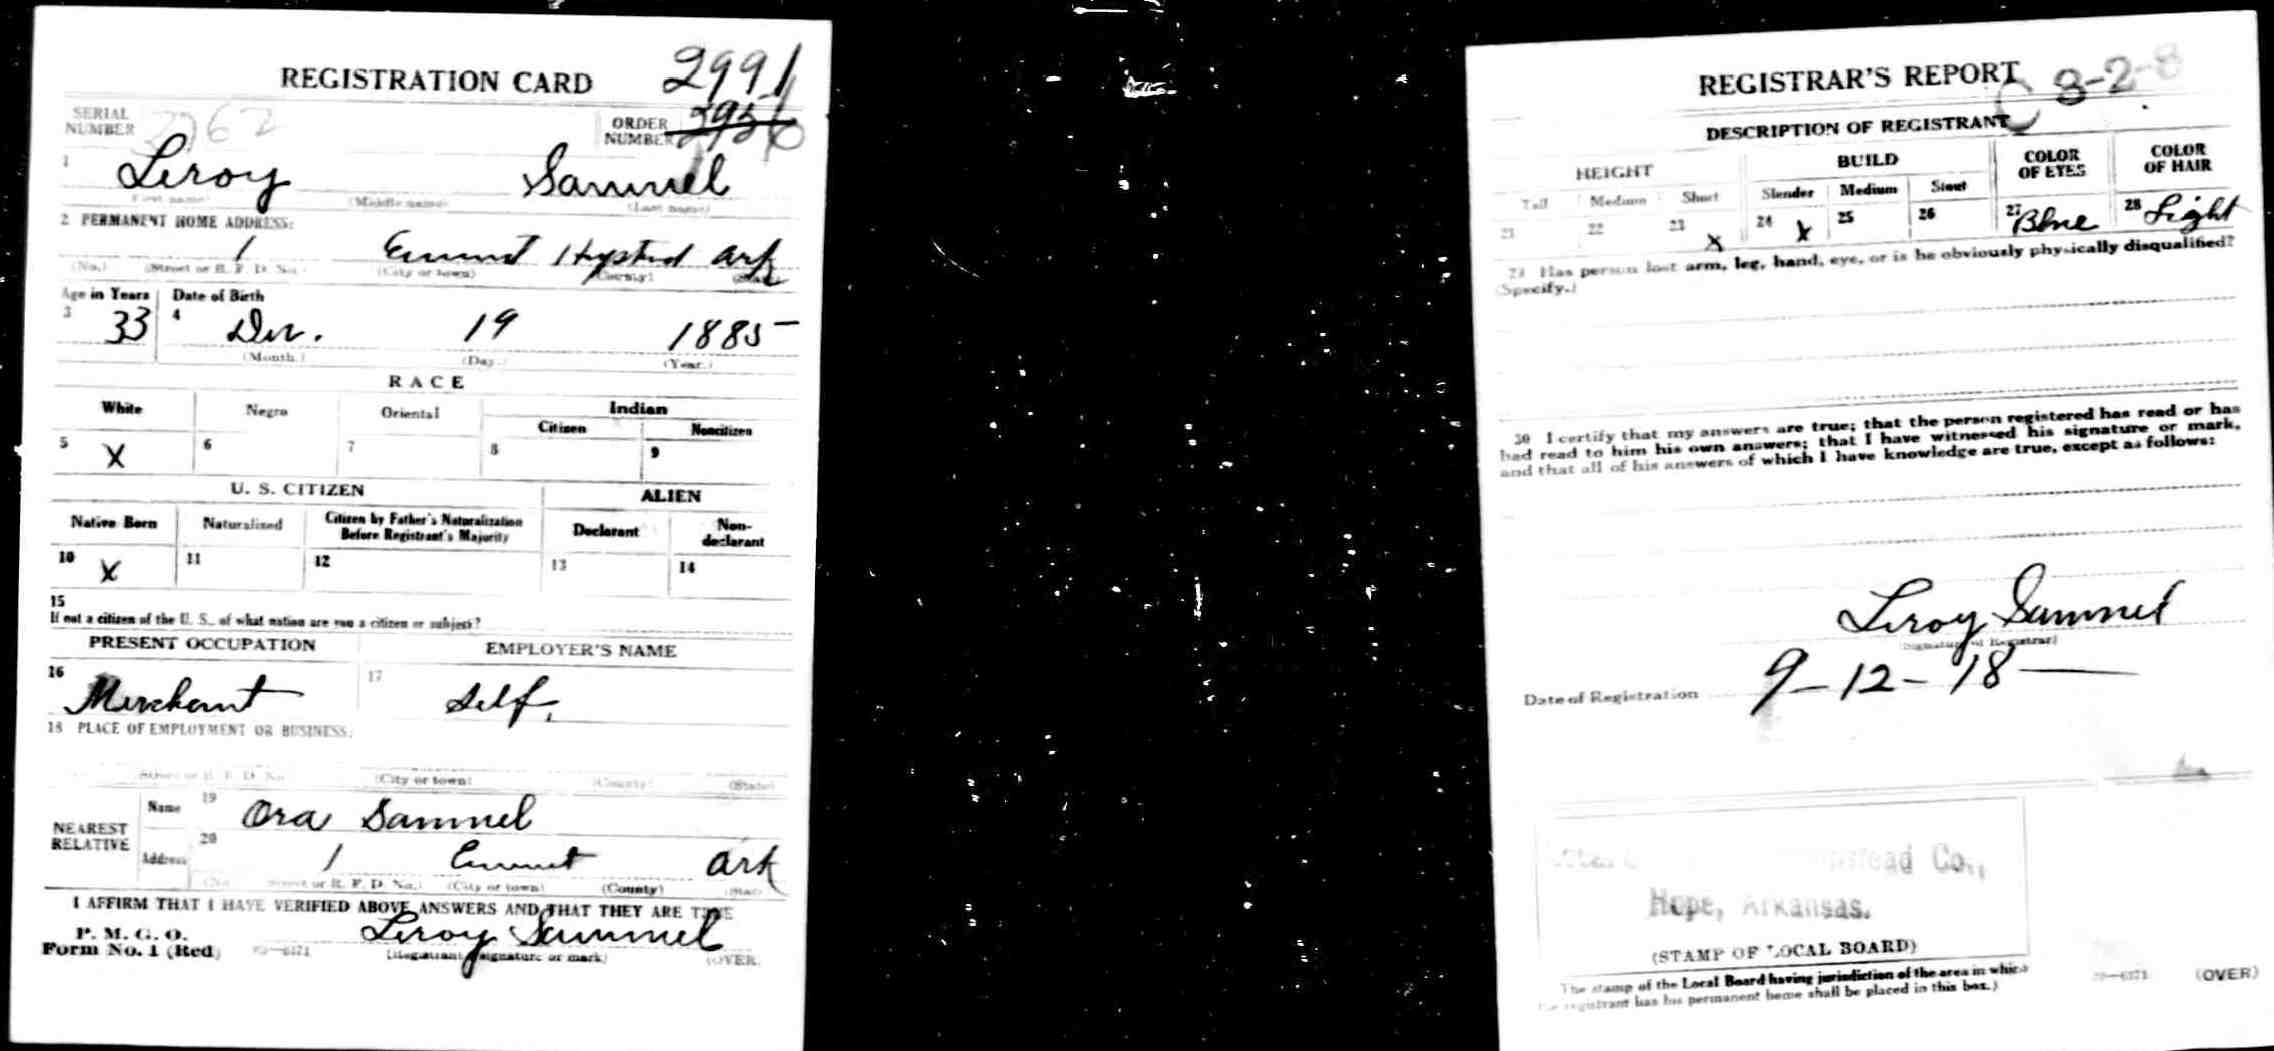 REGISTRATION CARD
2991
SERIAL NUMBER
ORDER NUMBER
1 Leroy Sammel
(First name) (Middle name) (Last name)
2 PERMANENT HOME ADDRESS:
1 Emmet Hpsted Ark
(No.) (Street or R. F. D. No.) (City or town) (County) (State)
Age in Years Date of Birth
3 33 4 Dec. 19 1885
(Month.) (Day.) (Year.)
RACE
White Negro Oriental Indian
Citizen Noncitizen
5 X 6 7 8 9
U. S. CITIZEN ALIEN
Native Born Naturalized Citizen by Father's Naturalization Before Registrant's Majority Declarant Non-declarant
10 X 11 12 13 14
15
If not a citizen of the U. S., of what nation are you a citizen or subject?
PRESENT OCCUPATION EMPLOYER'S NAME
16 Merchant 17 Self.
18 PLACE OF EMPLOYMENT OR BUSINESS:
(Street or R. F. D. No.) (City or town) (County) (State)
NEAREST RELATIVE
Name 19 Ora Sammel
Address 20 1 Emmet Ark
(No.) (Street or R. F. D. No.) (City or town) (County) (State)
I AFFIRM THAT I HAVE VERIFIED ABOVE ANSWERS AND THAT THEY ARE TRUE
P. M. G. O.
Form No. 1 (Red) Leroy Sammel
(Registrant's signature or mark) (OVER)
REGISTRAR'S REPORT
C 3-2-8
DESCRIPTION OF REGISTRANT
HEIGHT BUILD COLOR OF EYES COLOR OF HAIR
Tall Medium Short Slender Medium Stout
21 22 23 X 24 X 25 26 27 Blue 28 Light
29 Has person lost arm, leg, hand, eye, or is he obviously physically disqualified?
(Specify.)
30 I certify that my answers are true; that the person registered has read or has
had read to him his own answers; that I have witnessed his signature or mark,
and that all of his answers of which I have knowledge are true, except as follows:
Leroy Sammel
(Signature of Registrar)
Date of Registration 9-12-18
Hope, Arkansas.
(STAMP OF LOCAL BOARD)
The stamp of the Local Board having jurisdiction of the area in which
the registrant has his permanent home shall be placed in this box.)
(OVER)